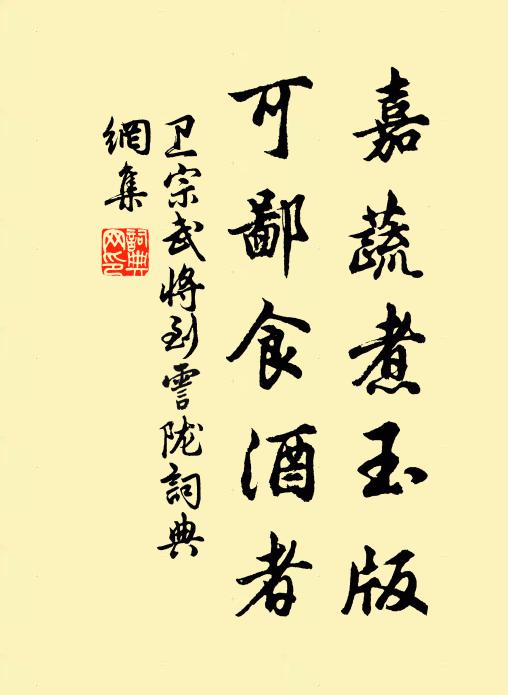 嘉蔬煮玉版
可鄙食酒者
卫宗武将到霅陇詞典
網集
詞典
网印